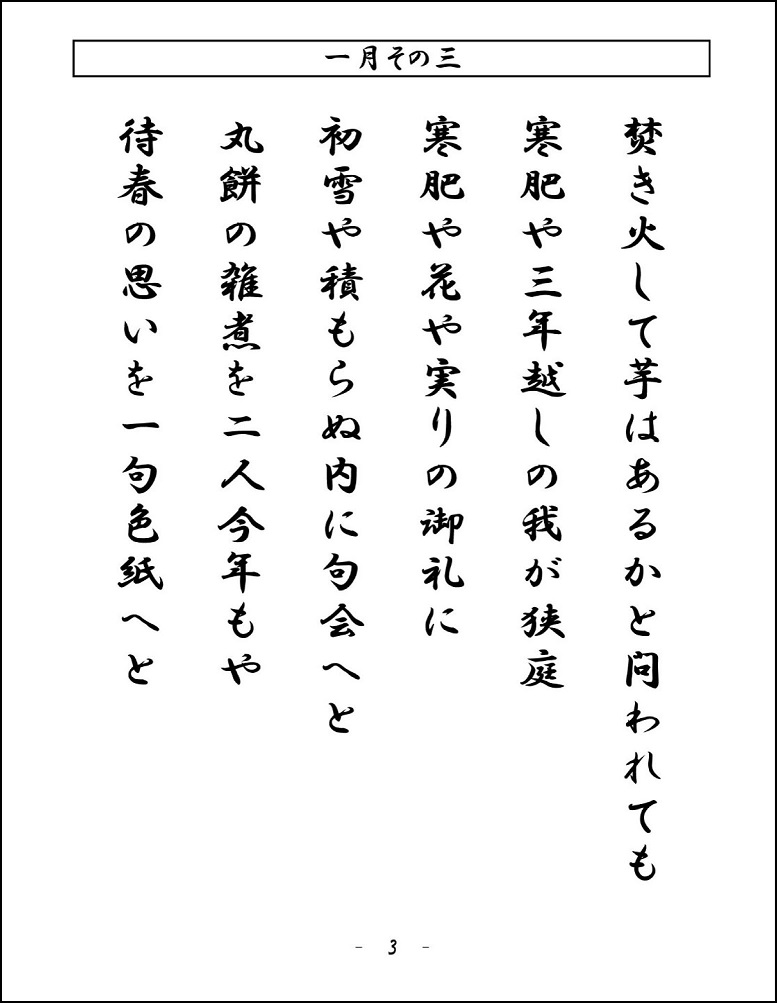 一月その三
焚き火して芋はあるかと問われても
寒肥や三年越しの我が狭庭
寒肥や花や実りの御礼に
初雪や積もらぬ内に句会へと
丸餅の雑煮を二人今年もや
待春の思いを一句色紙へと
- 3 -